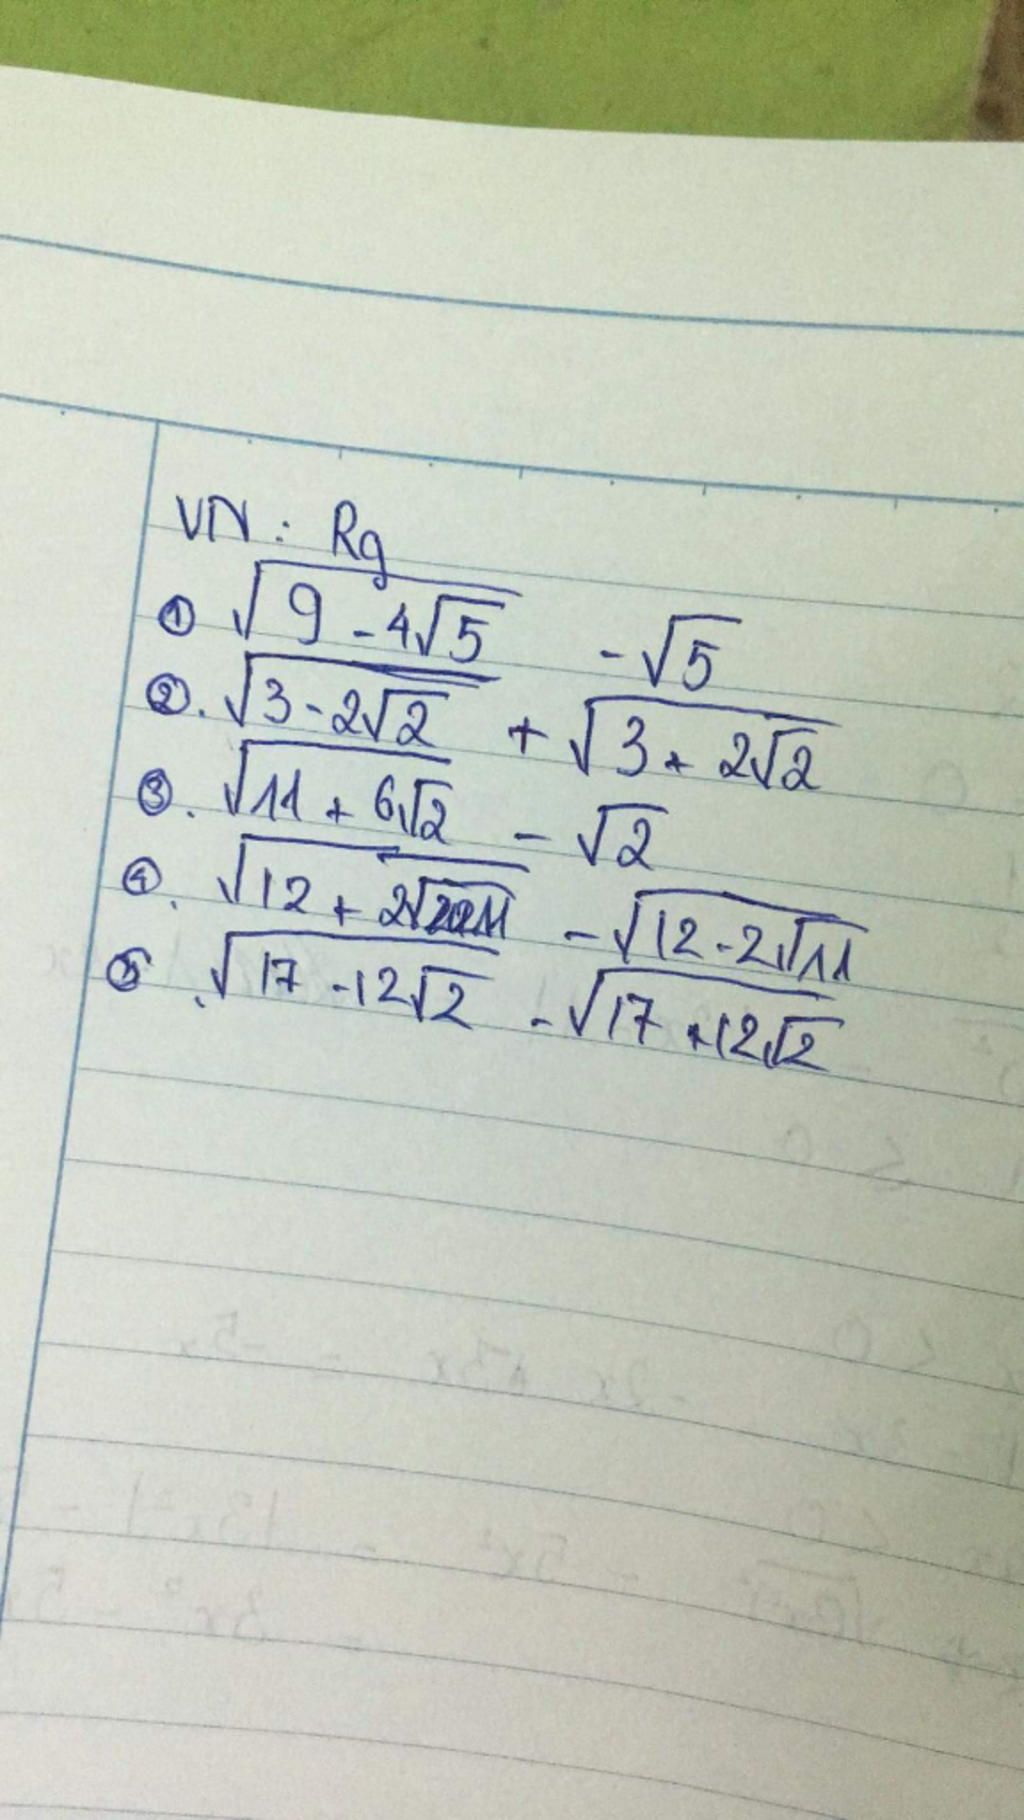 VN: Rg
① √(9 - 4√5) - √5
②. √(3 - 2√2) + √(3 + 2√2)
③. √(11 + 6√2) - √2
④. √(12 + 2√11) - √(12 - 2√11)
⑤. √(17 - 12√2) - √(17 + 12√2)